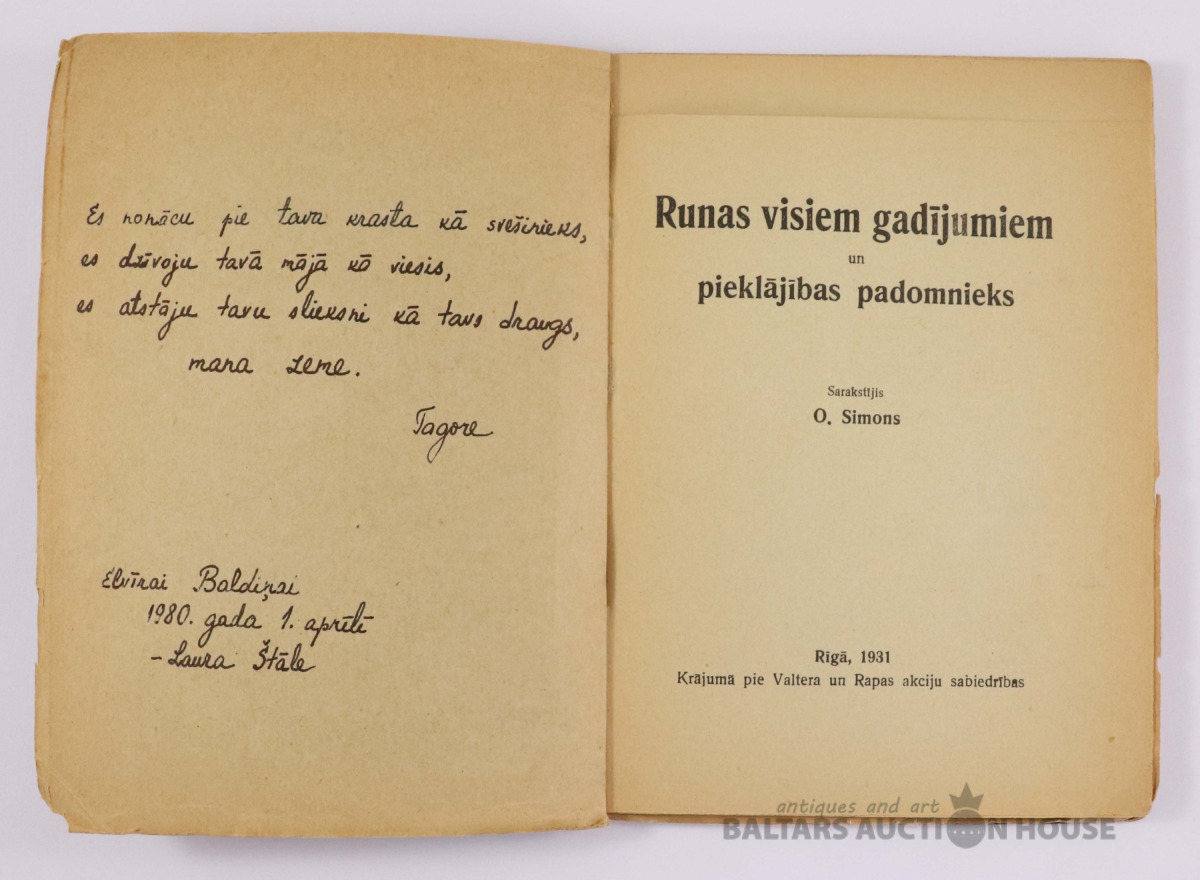 Es nonācu pie tava krasta kā svešinieks,
es dzīvoju tavā mājā kā viesis,
es atstāju tavu slieksni kā tavs draugs,
mana zeme.
Tagore
Elvīrai Baldiņai
1980. gada 1. aprīlī
- Laura Štāle
Runas visiem gadījumiem
un
pieklājības padomnieks
Sarakstījis
O. Simons
Rīgā, 1931
Krājumā pie Valtera un Rapas akciju sabiedrības
antiques and art
BALTARS AUCTION HOUSE